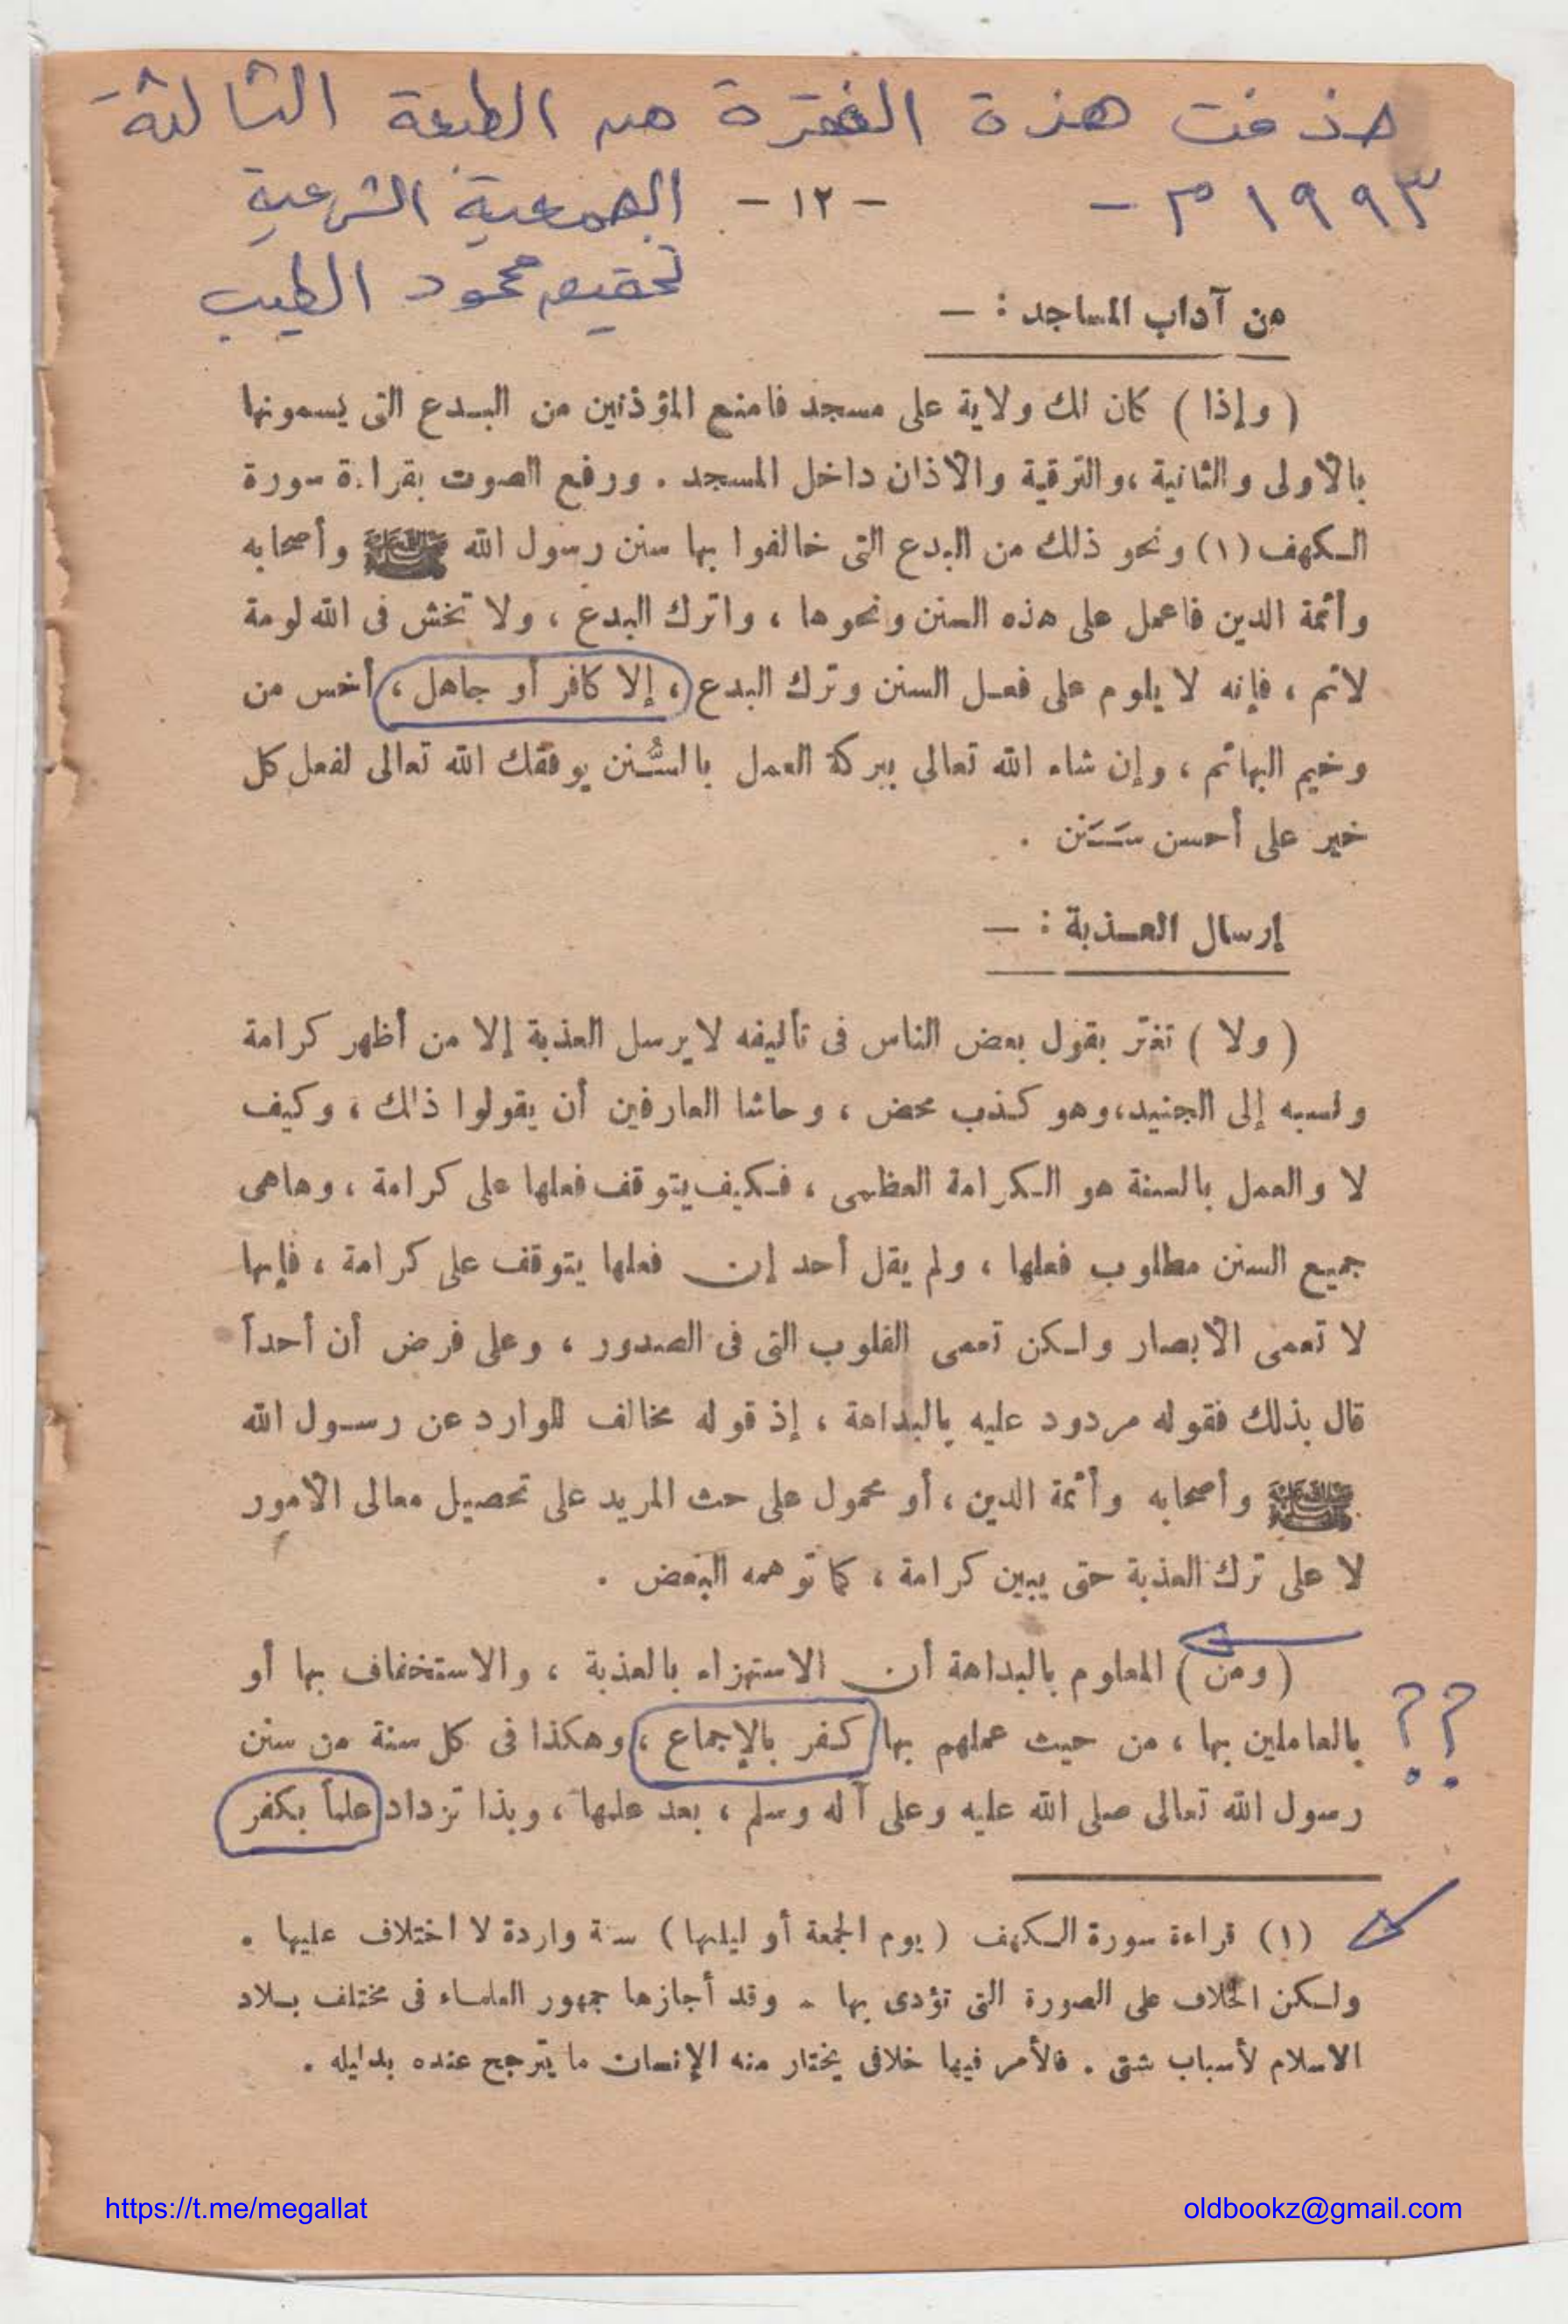 حذفت هذة الفقرة من الطبعة الثالثة
١٩٩٣م -
- ١٢ -
الجمعية الشرعية
تحقيق محمود الطيب
من آداب المساجد : —
( وإذا ) كان لك ولاية على مسجد فامنع المؤذنين من البدع التى يسمونها
بالأولى والثانية ، والترقية والأذان داخل المسجد . ورفع الصوت بقراءة سورة
الكهف (١) ونحو ذلك من البدع التى خالفوا بها سنن رسول الله ﷺ وأصحابه
وأئمة الدين فاعمل على هذه السنن ونحوها ، واترك البدع ، ولا تخش فى الله لومة
لائم ، فإنه لا يلوم على فعل السنن وترك البدع ، إلا كافر أو جاهل ، أخس من
وخيم البهائم ، وإن شاء الله تعالى ببركة العمل بالسُّنن يوفقك الله تعالى لفعل كل
خير على أحسن سَنَن .
إرسال العذبة : —
( ولا ) تغتر بقول بعض الناس فى تأليفه لا يرسل العذبة إلا من أظهر كرامة
ونسبه إلى الجنيد ، وهو كذب محض ، وحاشا العارفين أن يقولوا ذلك ، وكيف
لا والعمل بالسنة هو الكرامة العظمى ، فكيف يتوقف فعلها على كرامة ، وهاهى
جميع السنن مطلوب فعلها ، ولم يقل أحد إن فعلها يتوقف على كرامة ، فإنها
لا تعمى الأبصار ولكن تعمى القلوب التى فى الصدور ، وعلى فرض أن أحداً
قال بذلك فقوله مردود عليه بالبداهة ، إذ قوله مخالف للوارد عن رسول الله
ﷺ وأصحابه وأئمة الدين ، أو محمول على حث المريد على تحصيل معالى الأمور
لا على ترك العذبة حتى يبين كرامة ، كما توهمه البعض .
( ومن ) المعلوم بالبداهة أن الاستهزاء بالعذبة ، والاستخفاف بها أو
بالعاملين بها ، من حيث عملهم بها كفر بالإجماع ، وهكذا فى كل سنة من سنن
؟؟
رسول الله تعالى صلى الله عليه وعلى آله وسلم ، بعد علمها ، وبذا تزداد علماً بكفر
(١) قراءة سورة الكهف ( يوم الجمعة أو ليلها ) سنة واردة لا اختلاف عليها .
ولكن الخلاف على الصورة التى تؤدى بها . وقد أجازها جمهور العلماء فى مختلف بلاد
الاسلام لأسباب شتى . فالأمر فيها خلافى يختار منه الإنسان ما يترجح عنده بدليله .
https://t.me/megallat
oldbookz@gmail.com